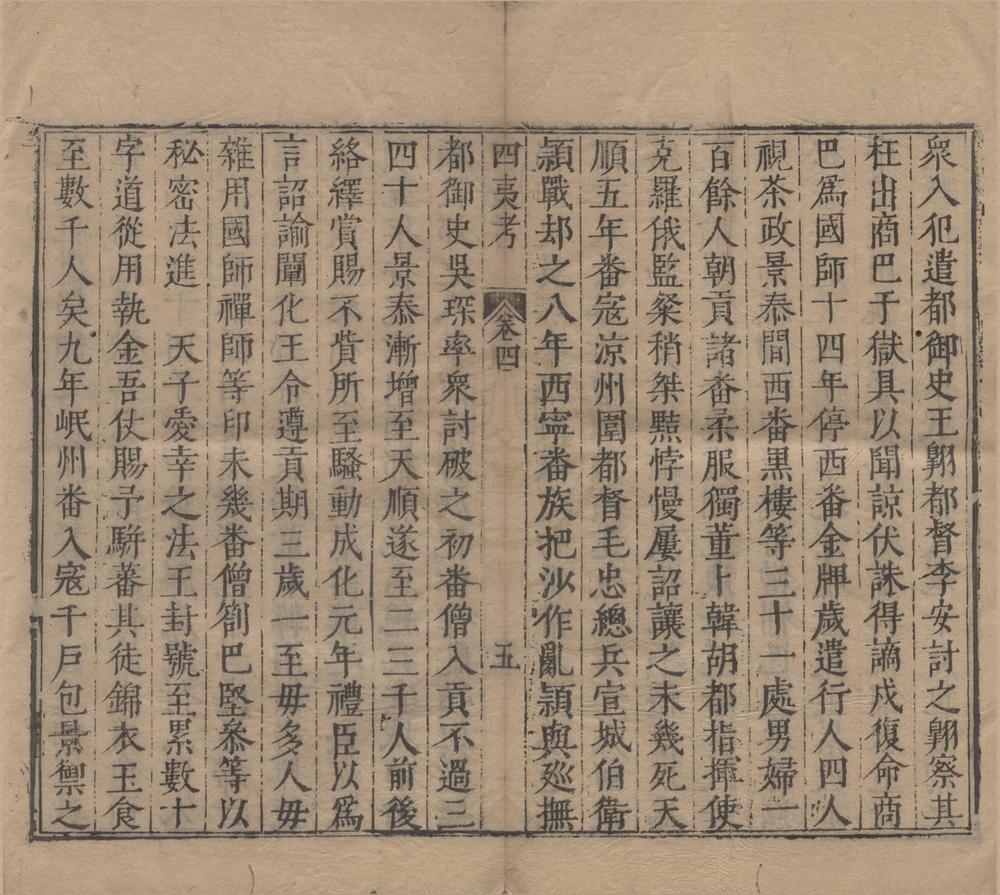 衆入犯遣都御史王翺都督李安討之翺察其
枉出商巴于獄具以聞諒伏誅得謫戍復命商
巴爲國師十四年停西番金牌歲遣行人四人
視茶政景泰間西番黑樓等三十一處男婦一
百餘人朝貢諸番柔服獨董卜韓胡都指揮使
克羅俄監粲稍桀黠悖慢屢詔讓之未幾死天
順五年番寇涼州圍都督毛忠總兵宣城伯衛
頴戰却之八年西寧番族把沙作亂頴與廵撫
四夷考 卷四 五
都御史吳琛率衆討破之初番僧入貢不過三
四十人景泰漸增至天順遂至二三千人前後
絡繹賞賜不貲所至騷動成化元年禮臣以爲
言詔諭闡化王令遵貢期三歲一至毋多人毋
雜用國師禪師等印未幾番僧劄巴堅叅等以
秘密法進 天子愛幸之法王封號至累數十
字道從用執金吾仗賜予駢蕃其徒錦衣玉食
至數千人矣九年岷州番入寇千戶包景禦之